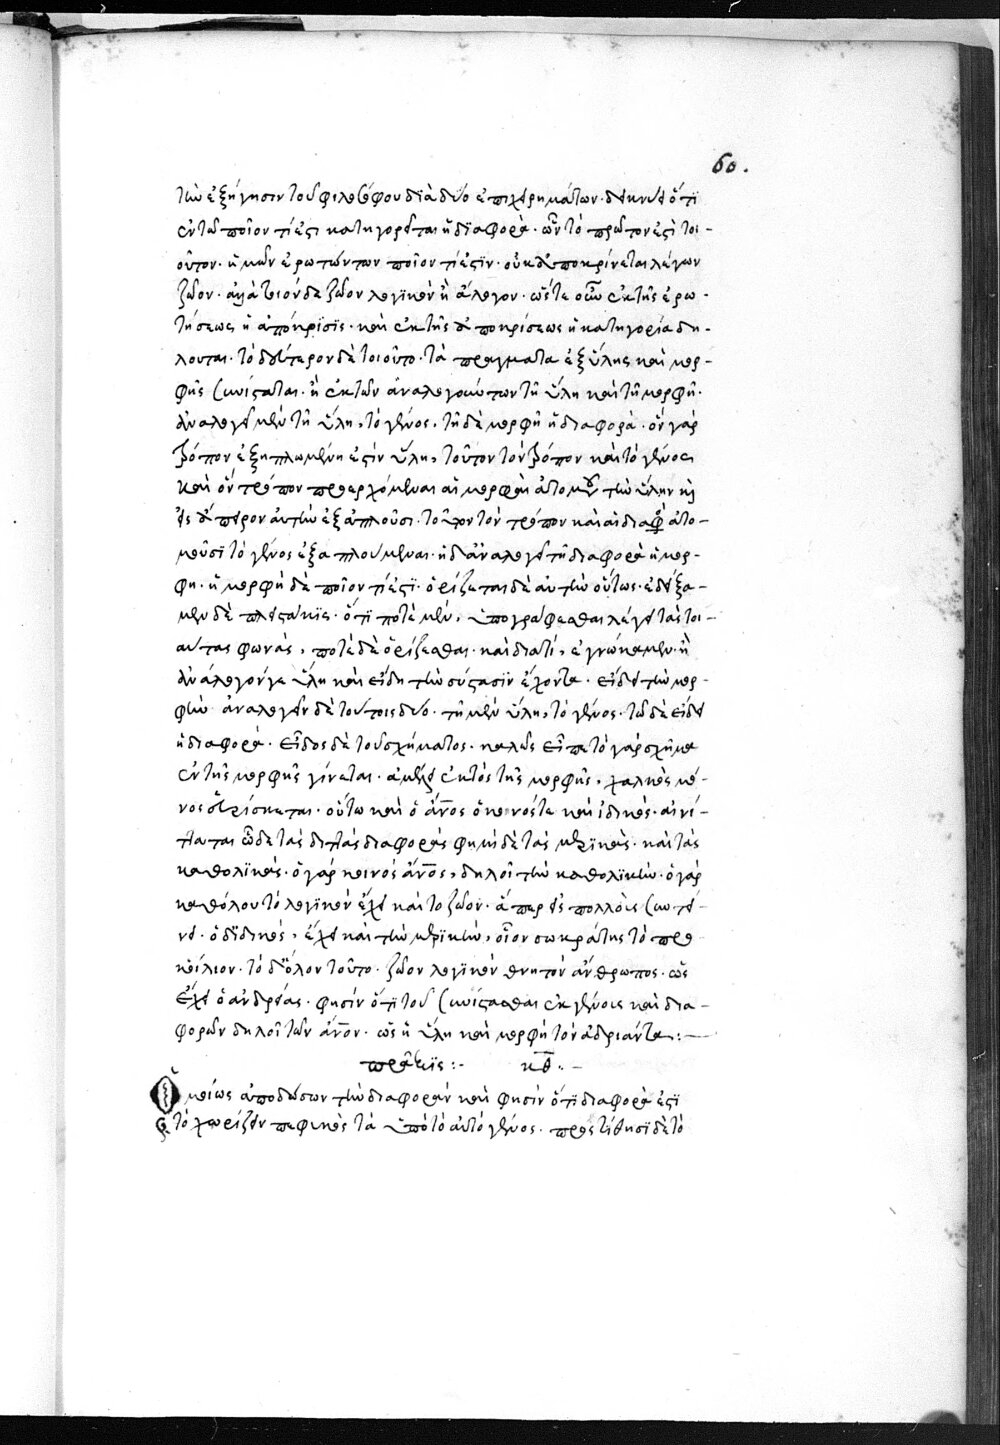 60.
τὴν ἐξήγησιν τοῦ φιλοσόφου διὰ δύο ἐπιχειρημάτων· δεικνύει ὅτι
ἐν τῷ ποῖον τί ἐστι κατηγορεῖται ἡ διαφορά· ὧν τὸ πρῶτον ἐστὶ τοι-
οῦτον· ἡμῶν ἐρωτώντων ποῖον τί ἐστιν· οὐκ ἀποκρίνεται λέγων
ζῷον· ἀλλὰ ποιόνδε ζῷον λογικὸν ἢ ἄλογον· ὥστε οὖν ἐκ τῆς ἐρω-
τήσεως ἡ ἀπόκρισις· καὶ ἐκ τῆς ἀποκρίσεως ἡ κατηγορία δη-
λοῦται· τὸ δεύτερον δὲ τοιοῦτο· τὰ πράγματα ἐξ ὕλης καὶ μορ-
φῆς συνίσταται· ἢ ἐκ τῶν ἀναλογούντων τῇ ὕλῃ καὶ τῇ μορφῇ·
ἀναλογεῖ μὲν τῇ ὕλῃ, τὸ γένος, τῇ δὲ μορφῇ ἡ διαφορὰ· ὃν γὰρ
τρόπον ἐξηπλωμένη ἐστὶν ὕλη, τοῦτον τὸν τρόπον καὶ τὸ γένος·
καὶ ὃν τρόπον προερχόμεναι αἱ μορφαὶ ἀτομοῦσι τὴν ὕλην καὶ
εἰς ἄπειρον αὐτὴν ἐξαπλοῦσι· τοῦτον τὸν τρόπον καὶ αἱ διαφοραὶ ἀτο-
μοῦσι τὸ γένος ἐξαπλούμεναι· ἡ δ' ἀναλογεῖ τῇ διαφορᾷ ἡ μορ-
φή· ἡ μορφὴ δὲ ποῖον τί ἐστι· ὁρίζεται δὲ αὐτὴν οὕτως· ἐδείξα-
μεν δὲ πλειστάκις· ὅτι ποτὲ μὲν, ὑπογράφεσθαι λέγει τὰς τοι-
αύτας φωνάς, ποτὲ δὲ ὁρίζεσθαι· καὶ διατί, ἐγνώκαμεν· ἢ
ἀνάλογόν γε ὕλῃ καὶ εἴδει τὴν σύστασιν ἔχοντα· εἴδει τὴν μορ-
φὴν· ἀναλογεῖν δὲ τούτοις δύο· τῇ μὲν ὕλῃ, τὸ γένος· τῷ δὲ εἴδει
ἡ διαφορά· εἶδος δὲ τοῦ σχήματος· καλῶς εἶπε τὸ γὰρ σχῆμα
ἐν τῆς μορφῆς γίνεται· ἀμέλει ἐκτὸς τῆς μορφῆς, χαλκὸς μό-
νος εὑρίσκεται· οὕτω καὶ ὁ ἄνος ὁ κοινός τε καὶ ἰδικός· αἰνί-
τται ὧδε τὰς διττὰς διαφορὰς φημὶ δὲ τὰς μερικὰς· καὶ τὰς
καθολικάς· ὁ γὰρ κοινὸς ἄνος, δηλοῖ τὴν καθολικὴν· ὁ γὰρ
καθόλου τὸ λογικὸν ἔχει καὶ τὸ ζῷον· ἅπερ εἰς πολλοὺς συντεί-
νει· ὁ δ' ἰδικὸς, ἔχει καὶ τὴν μερικὴν, οἷον σωκράτης τὸ προ-
κοίλιον· τὸ δ' ὅλον τοῦτο· ζῷον λογικὸν θνητὸν ἄνθρωπος· ὡς
ἔχει ὁ ἀνδρέας· φησὶν ὅτι τοῦ συνίστασθαι ἐκ γένους καὶ δια-
φορῶν δηλοῖ τὸν ἄνον· ὡς ἡ ὕλη καὶ μορφὴ τὸν ἀδριάντα:—
πρᾶξις:· κθ·–
Ὁμοίως ἀποδώσων τὴν διαφορὰν καὶ φησὶν ὅτι διαφορὰ ἐστὶ
τὸ χωρίζειν πεφυκὸς τὰ ὑπὸ τὸ αὐτὸ γένος· προστίθησι δὲ τὸ